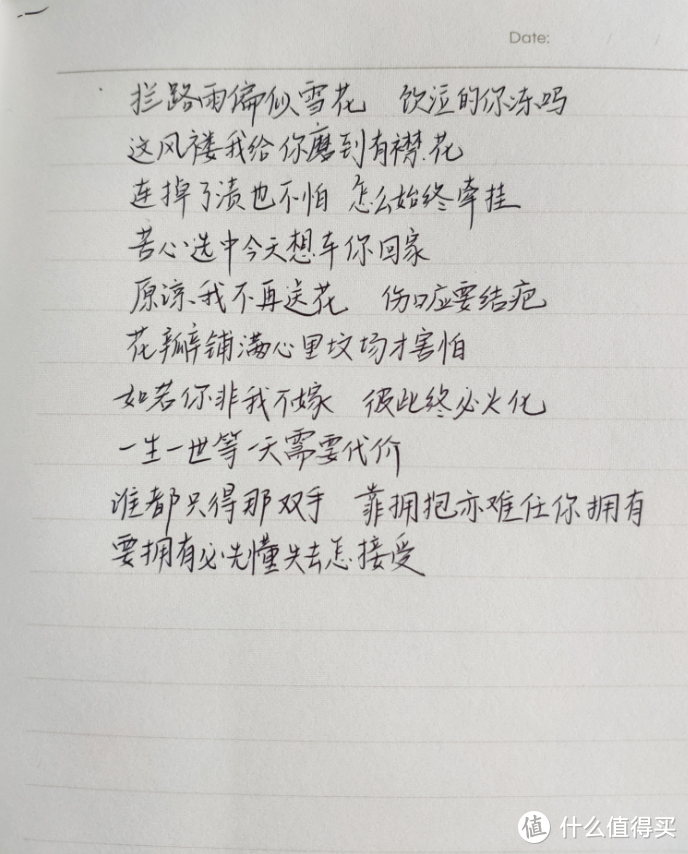 Date:
拦路雨偏似雪花 饮泣的你冻吗
这风褛我给你磨到有襟花
连掉了渍也不怕 怎么始终牵挂
苦心选中今天想车你回家
原谅我不再送花 伤口应要结疤
花瓣铺满心里坟场才害怕
如若你非我不嫁 彼此终必火化
一生一世等一天需要代价
谁都只得那双手 靠拥抱亦难任你拥有
要拥有必先懂失去怎接受
值 什么值得买